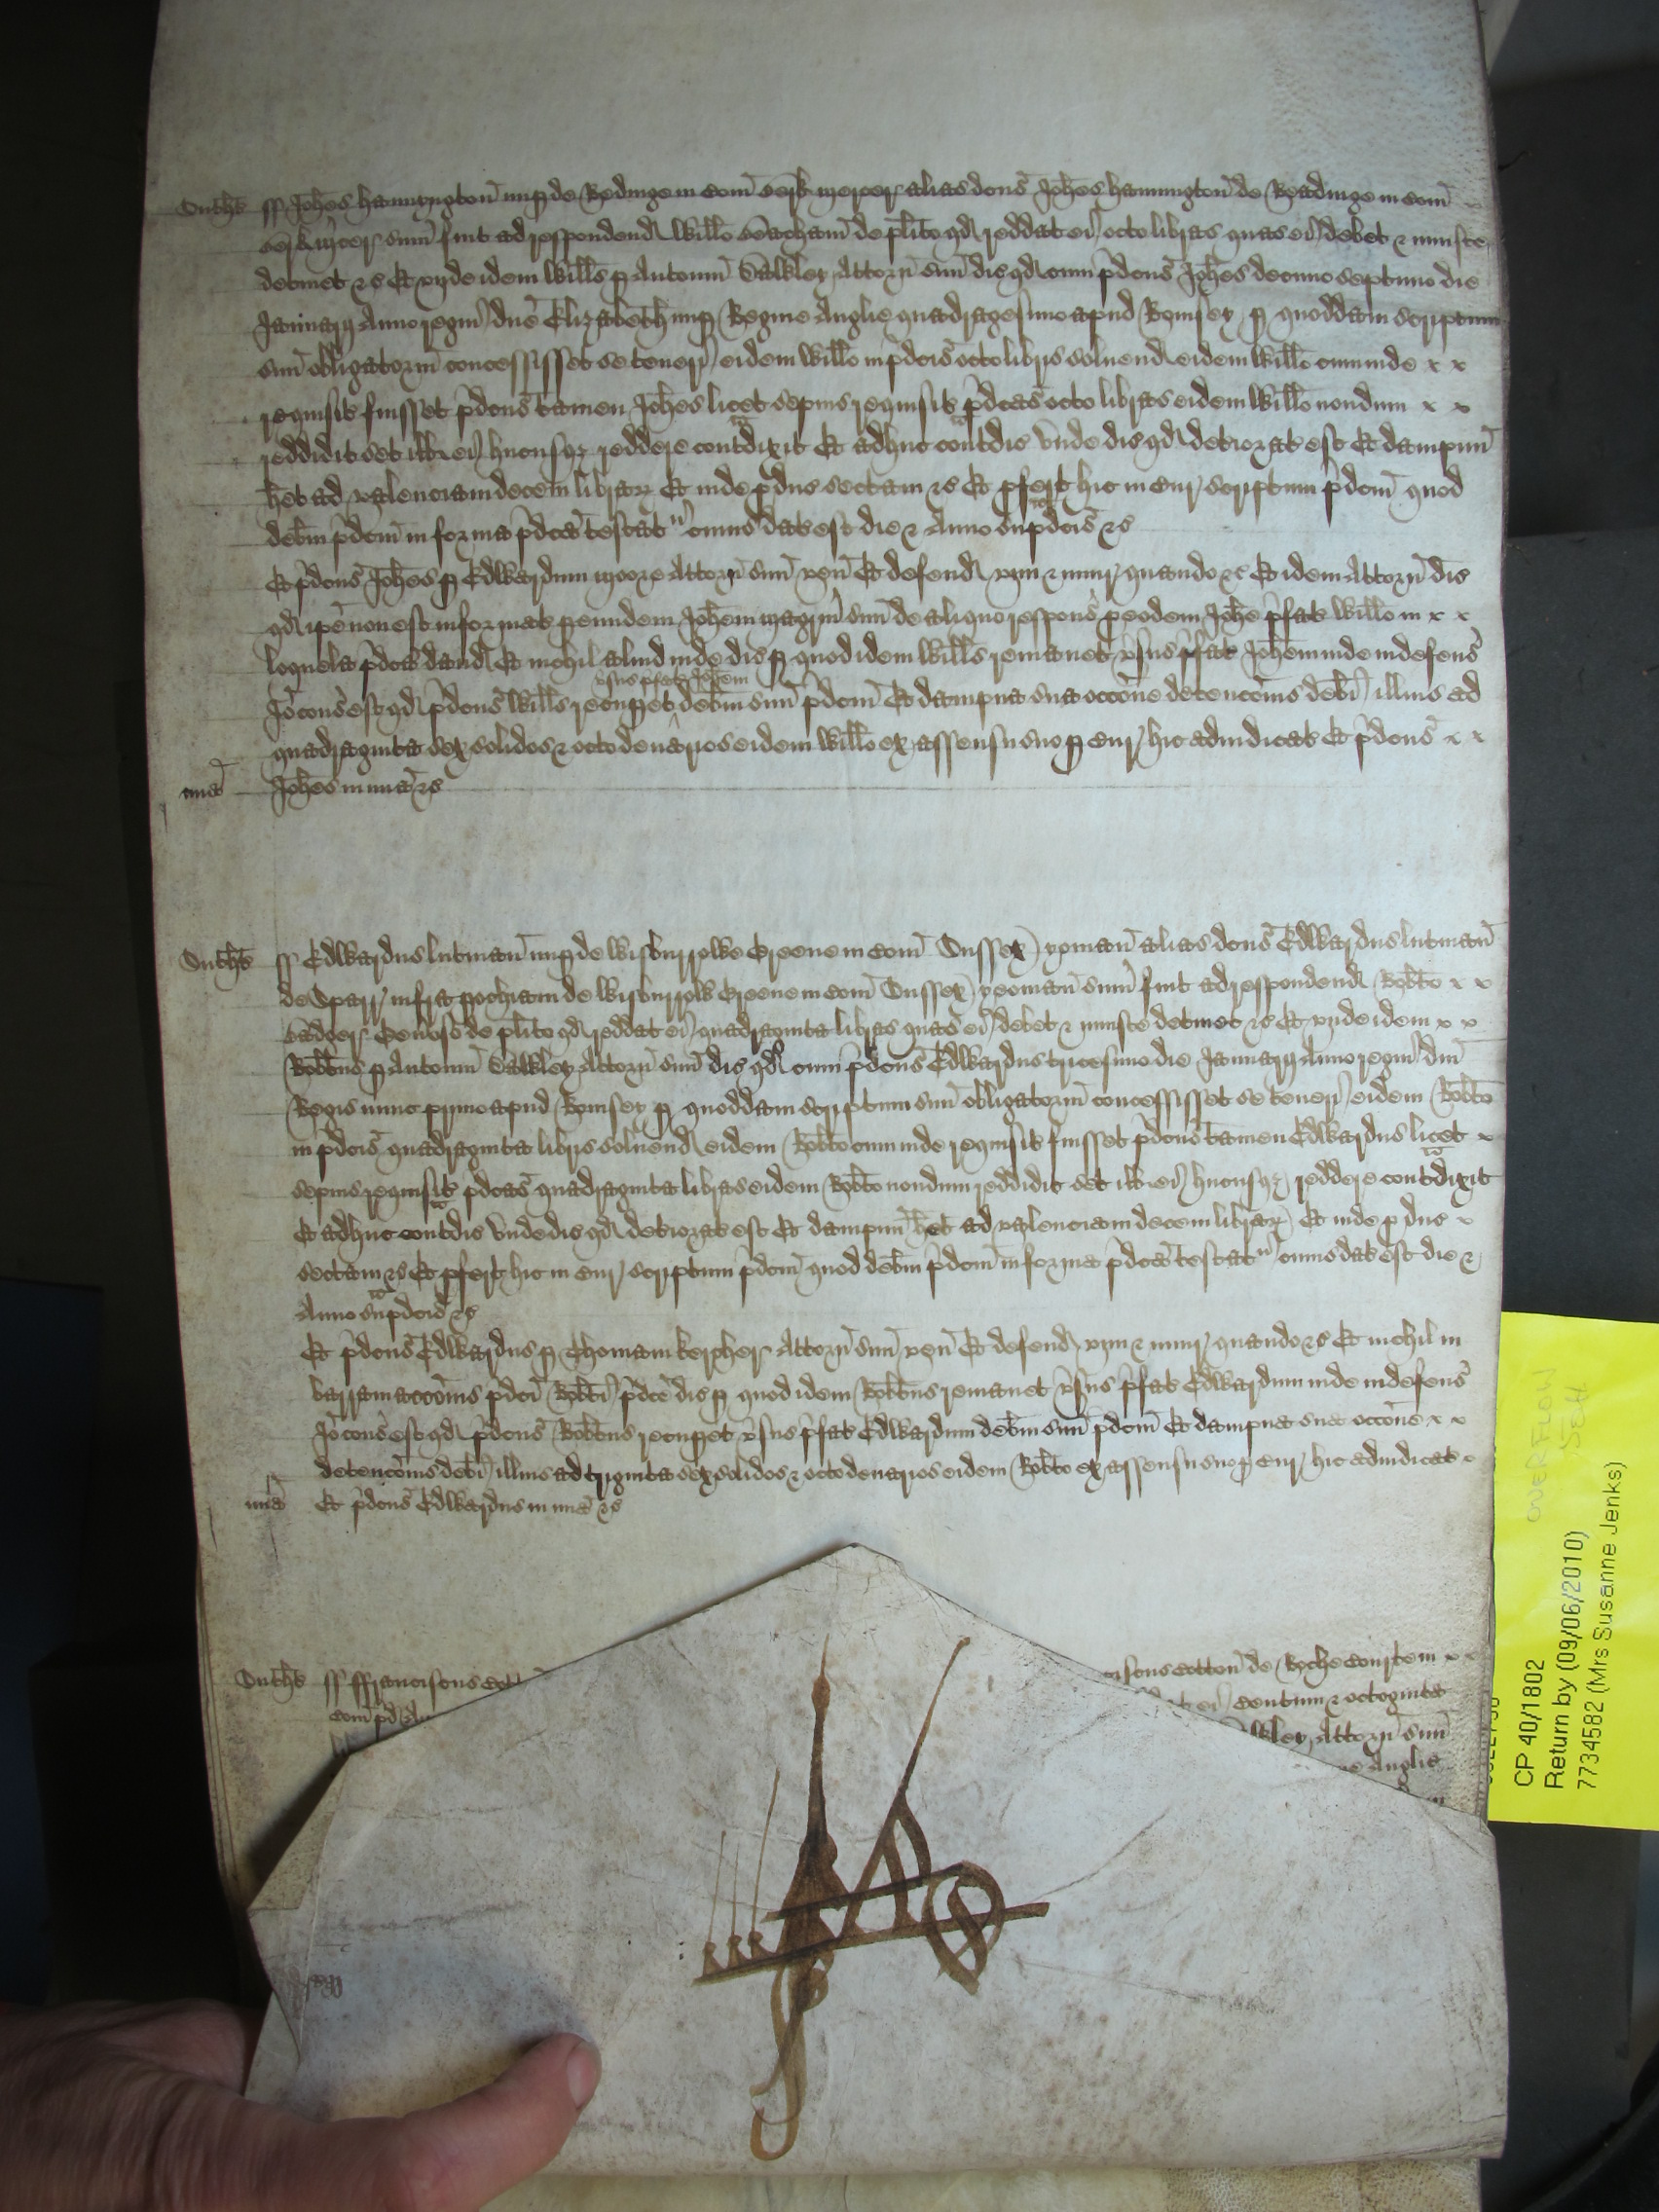 Sutht ss Johes Hannyngton nup de Redinge in Com Berk Mercer alias dcus Johes Hannington de Readinge in Com
Berk Mcer sum fuit ad respondend Willo Beacham de plito qd reddat ei octo libras quas ei debet & iniuste
detinet &c Et unde idem Wills p Antoniu Attorn suu dic qd cum pdcus Johes decimo septimo die
Januarij Anno regni dne Elizabeth nup Regine Anglie quadragesimo apud Romsey p quoddam scriptum
suu obligatoriu concessisset se teneri eidem Willo in pdcis octo libris solvend eidem Willo cum inde x x
requisit fuisset pdcus tamen Johes licet sepius requisit pdcas octo libras eidem Willo nondum x x
reddidit set ill ei hucusq reddere contdixit Et adhuc contdic Unde dic qd deteriorat est Et dampnu
het ad valenciam decem librar Et inde pduc sectam &c Et pfert hic in Cur scriptum pdcm quod
debm pdcm in forma pdca testat cuius dat est die & Anno supdcis &c
Et pdcus Johes p Edwardum Moore Attorn suu ven Et defend vim & iniur quando &c Et idem Attorn dic
qd ipe non est informat p eundem Johem magrm suu de aliquo respons p eodem Johe pfat Willo in x x
loquela pdca dand Et nichil aliud inde dic p quod idem Wills remanet vsus pfat Johem inde indefens
vsus pfat Johem
Jo cons est qd pdcus Wills recupet debm suu pdcm Et dampna sua occone detencois debi illius ad
quadraginta sex solidos & octo denarios eidem Willo ex assensu suo p Cur hic adiudicat Et pdcus x x
mia Johes in mia &c
Sutht ss Edwardus Lutman nup de Wisburrowe Greene in Com Sussex yoman alias dcus Edwardus Lutman
de Sparr infra pochiam de Wisburrow Greene in Com Sussex yeoman sum fuit ad respondend Robto x x
Badger genoso de plito qd reddat ei quadraginta libras quas ei debet & iniuste detinet &c Et unde idem x x
Robtus p Antoniu Attorn suu dic qd cum pdcus Edwardus tricesimo die Januarij Anno regni dni
Regis nunc primo apud Romsey p quoddam scriptum suu obligatoriu concessisset se teneri eidem Robto
in pdcis quadraginta libris solvend eidem Robto cum inde requisit fuisset pdcus tamen Edwardus licet x
sepius requisit pdcas quadraginta libras eidem Robto nondum reddidit set ill ei hucusq reddere contdixit
Et adhuc contdic Unde dic qd deteriorat est Et dampnu het ad valenciam decem librar Et inde pduc x
sectam &c Et pfert hic in Cur scriptum pdcm quod debm pdcm in forma pdca testat cuius dat est die &
Anno supdcis &c
Et pdcus Edwardus p Thomam Attorn suu ven Et defend vim & iniur quando &c Et nichil in
barram accois pdci Robti pdce dic p quod idem Robtus remanet vsus pfat Edwardum inde indefens
Jo cons est qd pdcus Robtus recupet vsus pfat Edwardum debm suu pdcm Et dampna sua occone x x
detencois debi illius ad triginta sex solidos & octo denarios eidem Robto ex assensu suo p Cur hic adiudicat x
mia Et pdcus Edwardus in mia &c
Sutht ss Franciscus Cotton de
com pd
ei Centum & octoginta
Attorn suu
Anglie
OVERFLOW
CP 40/1802
Return by (09/06/2010)
7734582 (Mrs Susanne Jenks)